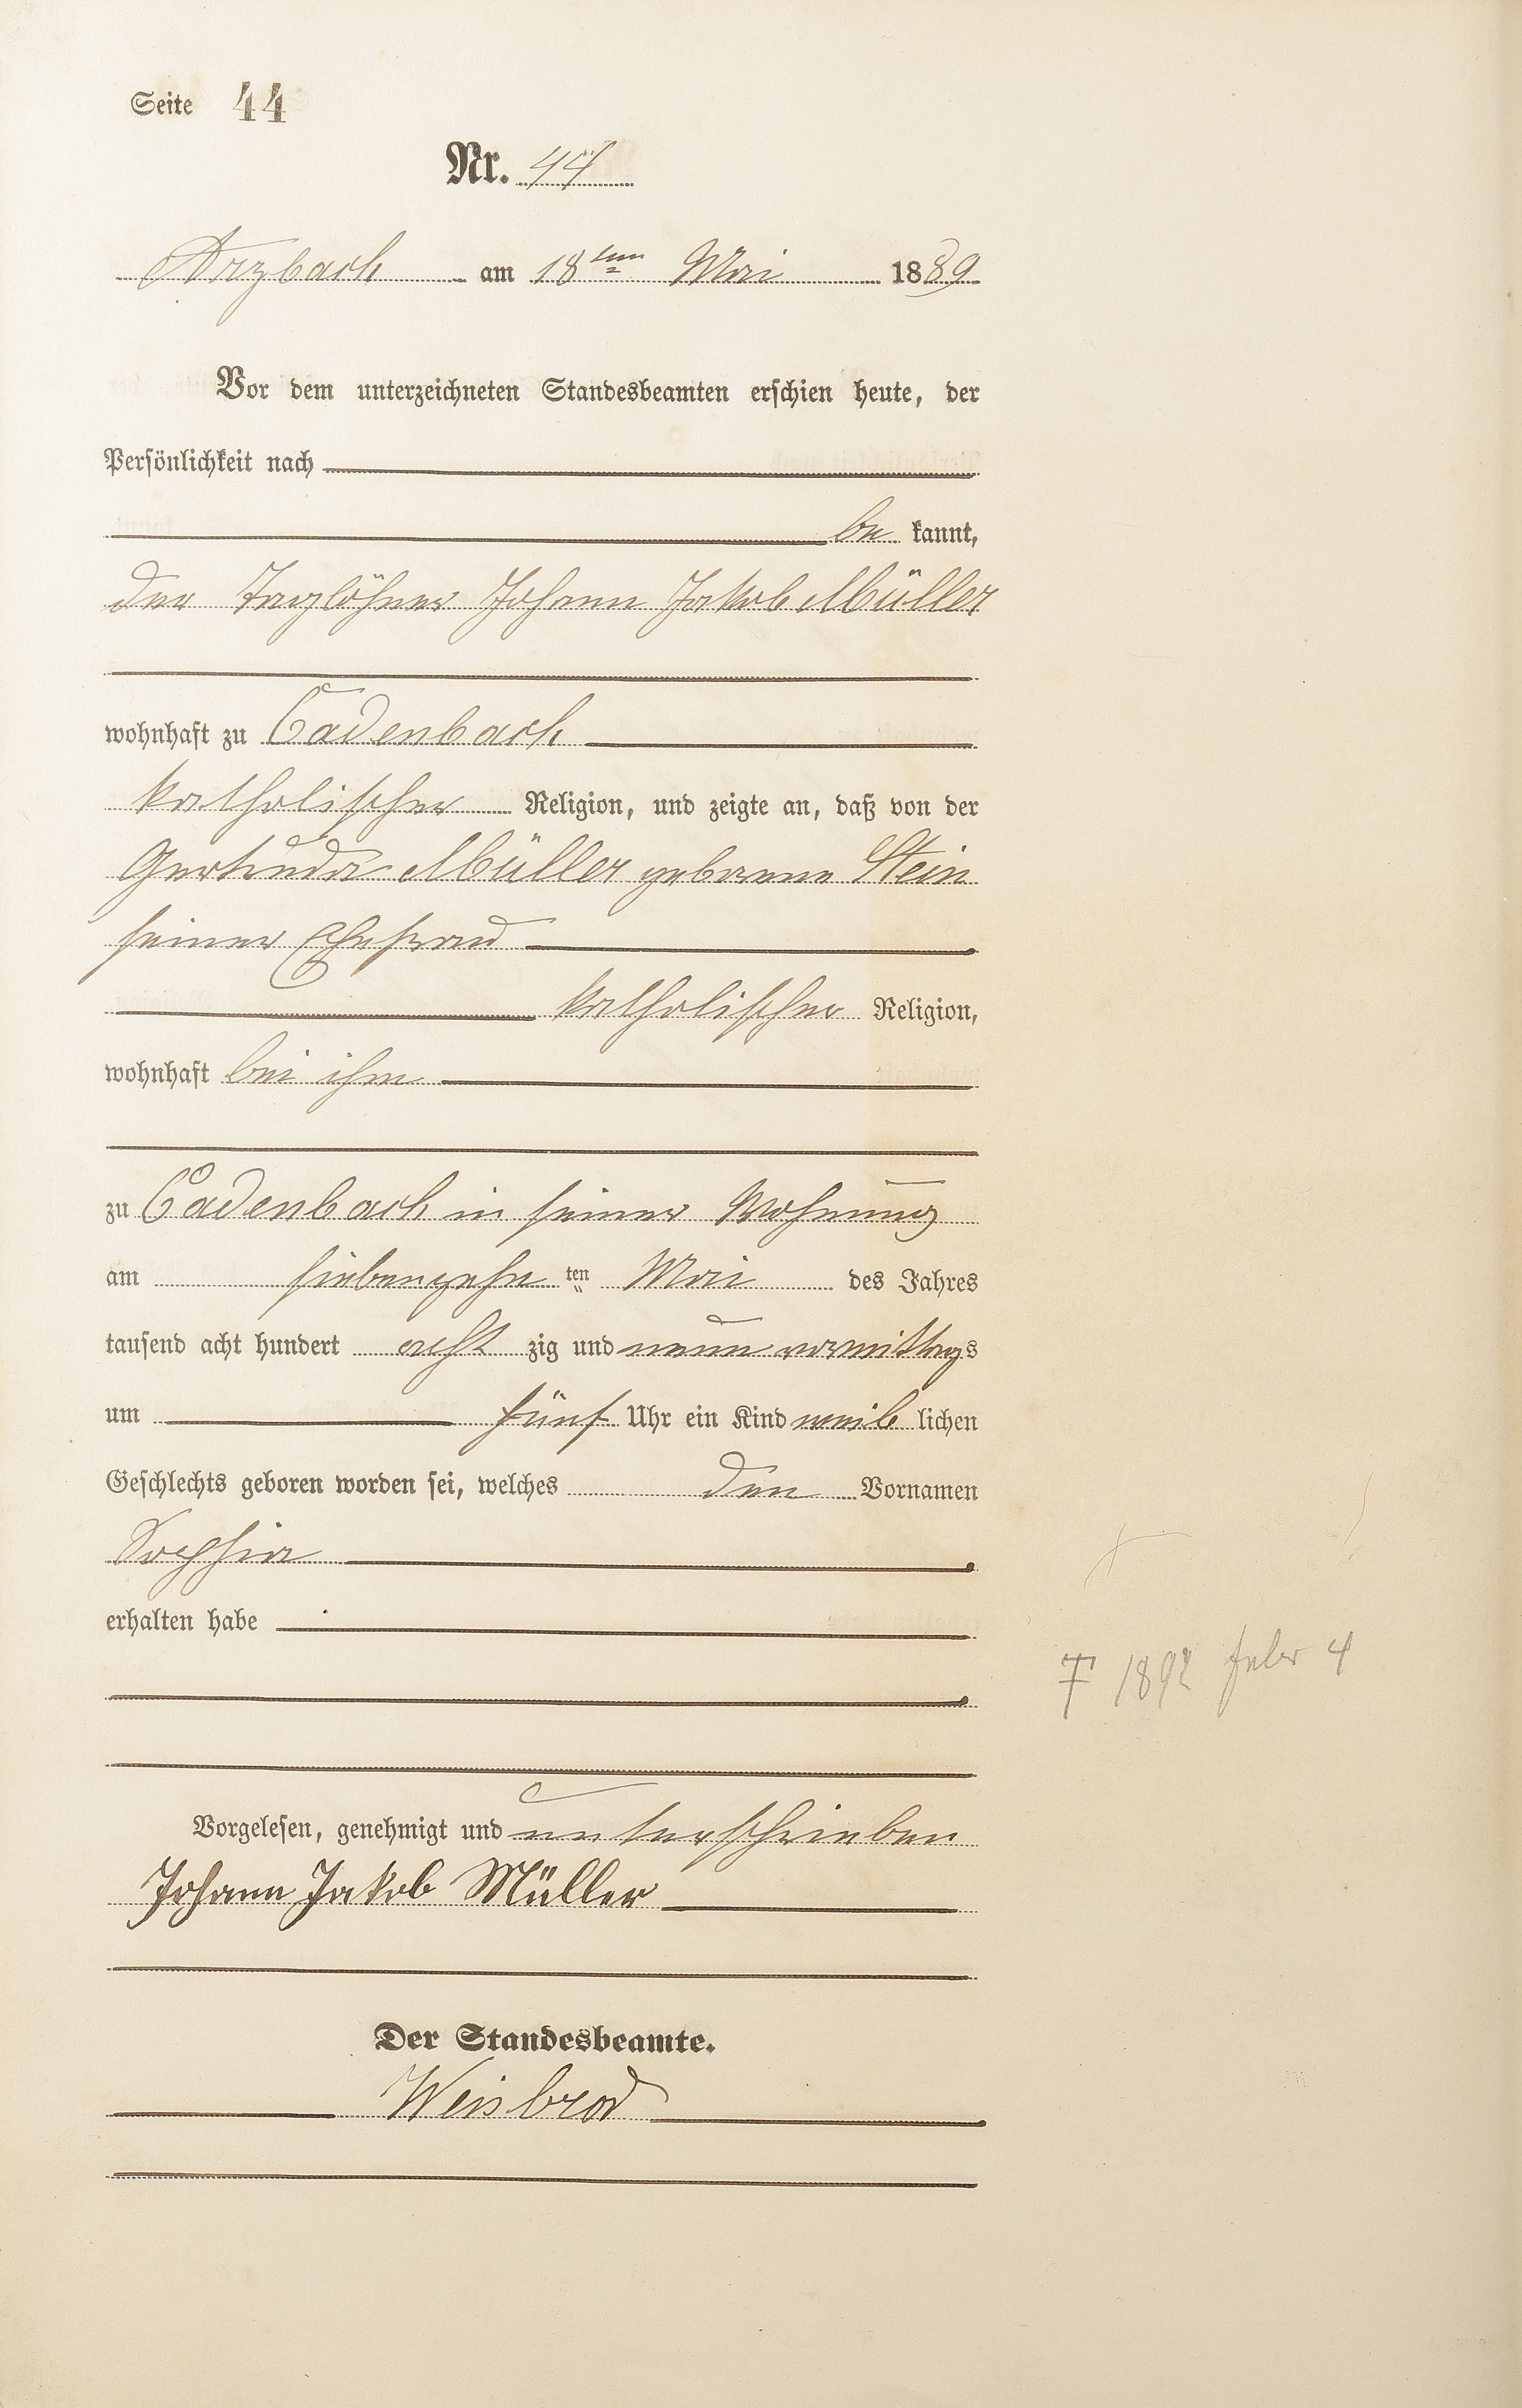 Seite 44
Nr. 44
Arzbach am 18ten Mai 1889
Vor dem unterzeichneten Standesbeamten erschien heute, der
Persönlichkeit nach
be kannt,
der Taglöhner Johann Jakob Müller
wohnhaft zu Cadenbach
katholischer Religion, und zeigte an, daß von der
Gertruda Müller geborene Stein
seiner Ehefrau
katholischer Religion,
wohnhaft bei ihm
zu Cadenbach in seiner Wohnung
am siebenzehn ten Mai des Jahres
tausend acht hundert acht zig und neun vormittags
um fünf Uhr ein Kind weib lichen
Geschlechts geboren worden sei, welches den Vornamen
Sophia
erhalten habe
† 1892 Febr 4
Vorgelesen, genehmigt und unterschrieben
Johann Jakob Müller
Der Standesbeamte.
Weisbrod